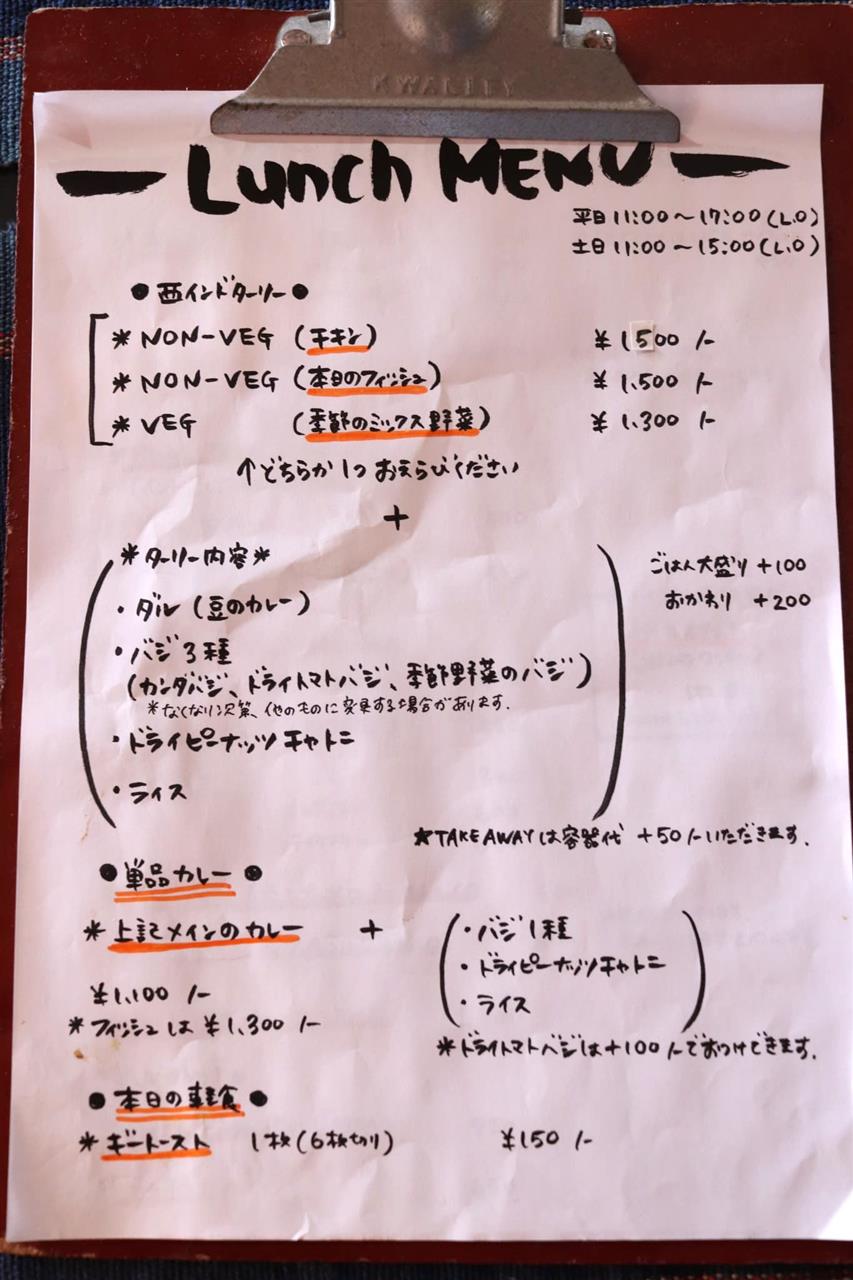 KWALITY
Lunch MENU
平日 11:00～17:00(L.O)
土日 11:00～15:00(L.O)
●西インドターリー●
*NON-VEG (チキン) ¥1500/-
*NON-VEG (本日のフィッシュ) ¥1,500/-
*VEG (季節のミックス野菜) ¥1,300/-
↑どちらか1つおえらびください
+
*ターリー内容*
ごはん大盛り +100
おかわり +200
・ダル(豆のカレー)
・バジ3種
(カンダバジ、ドライトマトバジ、季節野菜のバジ)
*なくなり次第、他のものに変更する場合があります.
・ドライピーナッツチャトニ
・ライス
★TAKE AWAYは容器代 +50/-いただきます.
●単品カレー●
*上記メインのカレー +
・バジ1種
・ドライピーナッツチャトニ
・ライス
¥1,100/-
*フィッシュは¥1,300/-
*ドライトマトバジは+100/-でおつけできます.
●本日の軽食●
*ギートースト 1枚(6枚切り) ¥150/-